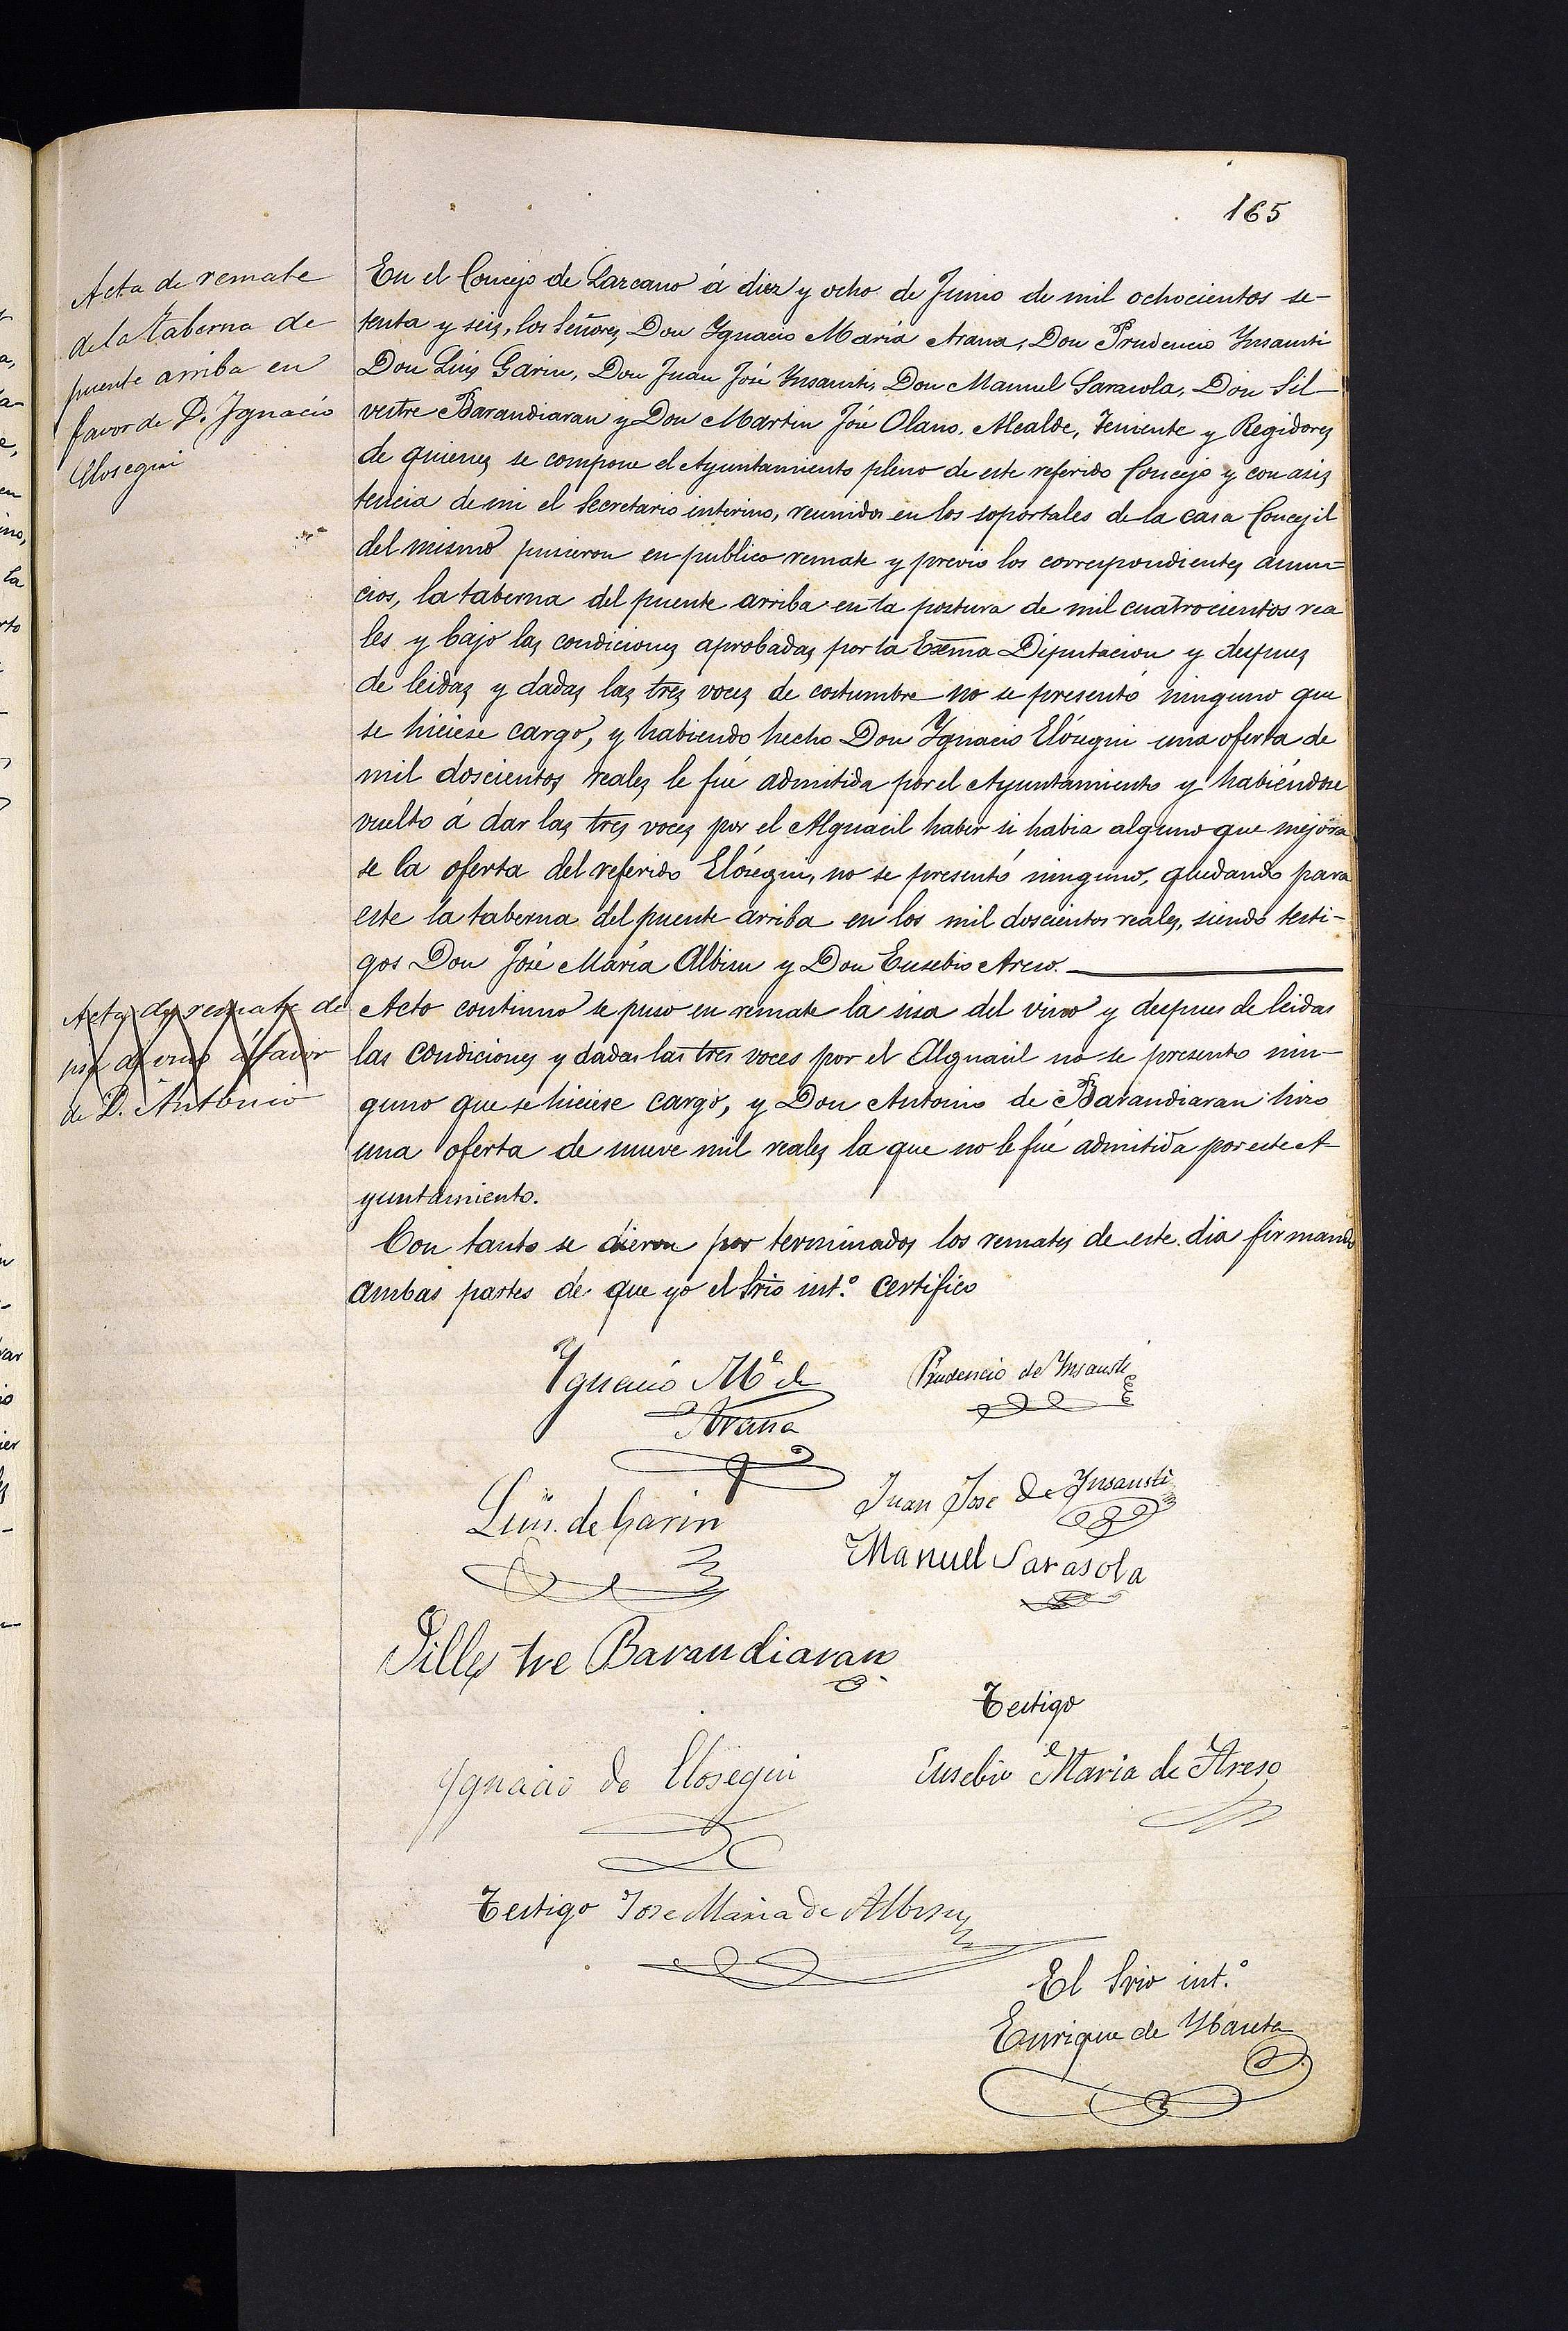 165
Acta de remate
de la taberna de
puente arriba en
favor de D. Ignacio
Elosegui
En el Concejo de Lazcano á diez y ocho de Junio de mil ochocientos se-
tenta y seis, los Señores Don Ygnacio María Arana, Don Prudencio Ynsausti
Don Luis Garin, Don Juan José Ynsausti, Don Manuel Sarasola, Don Sil-
vestre Barandiaran y Don Martin José Olano. Alcalde, Teniente y Regidores
de quienes se compone el Ayuntamiento pleno de este referido Concejo y con asis
tencia de mi el Secretario interino, reunidos en los soportales de la casa Concejil
del mismo pusieron en publico remate y previo los correspondientes anun-
cios, la taberna del puente arriba en la postura de mil cuatrocientos rea
les y bajo las condiciones aprobadas por la Exma Diputacion y despues
de leidas y dadas las tres voces de costumbre no se presentó ninguno que
se hiciese cargo, y habiendo hecho Don Ygnacio Elósegui una oferta de
mil doscientos reales le fué admitida por el Ayuntamiento y habiéndose
vuelto á dar las tres voces por el Alguacil haber si habia alguno que mejora
se la oferta del referido Elósegui, no se presentó ninguno, quedando para
este la taberna del puente arriba en los mil doscientos reales, siendo testi-
gos Don José María Albisu y Don Eusebio Areso.
Acta de remate de
á favor
de D. Antonio
Acto continuo se puso en remate la sisa del vino y despues de leidas
las condiciones y dadas las tres voces por el Alguacil no se presento nin-
guno que se hiciese cargo, y Don Antonio de Barandiaran hizo
una oferta de nueve mil reales la que no le fué admitida por este A-
yuntamiento.
Con tanto se dieron por terminados los remates de este dia firmando
ambas partes de que yo el Srio int.º certifico
Ygnacio Mª de
Arana
Prudencio de Ynsausti
Luis de Garin
Juan Jose de Ynsausti
Manuel Sarasola
Silbestre Barandiaran
Testigo
Ygnacio de Elosegui
Eusebio Maria de Areso
Testigo Jose Maria de Albisu
El Srio int.º
Enrique de